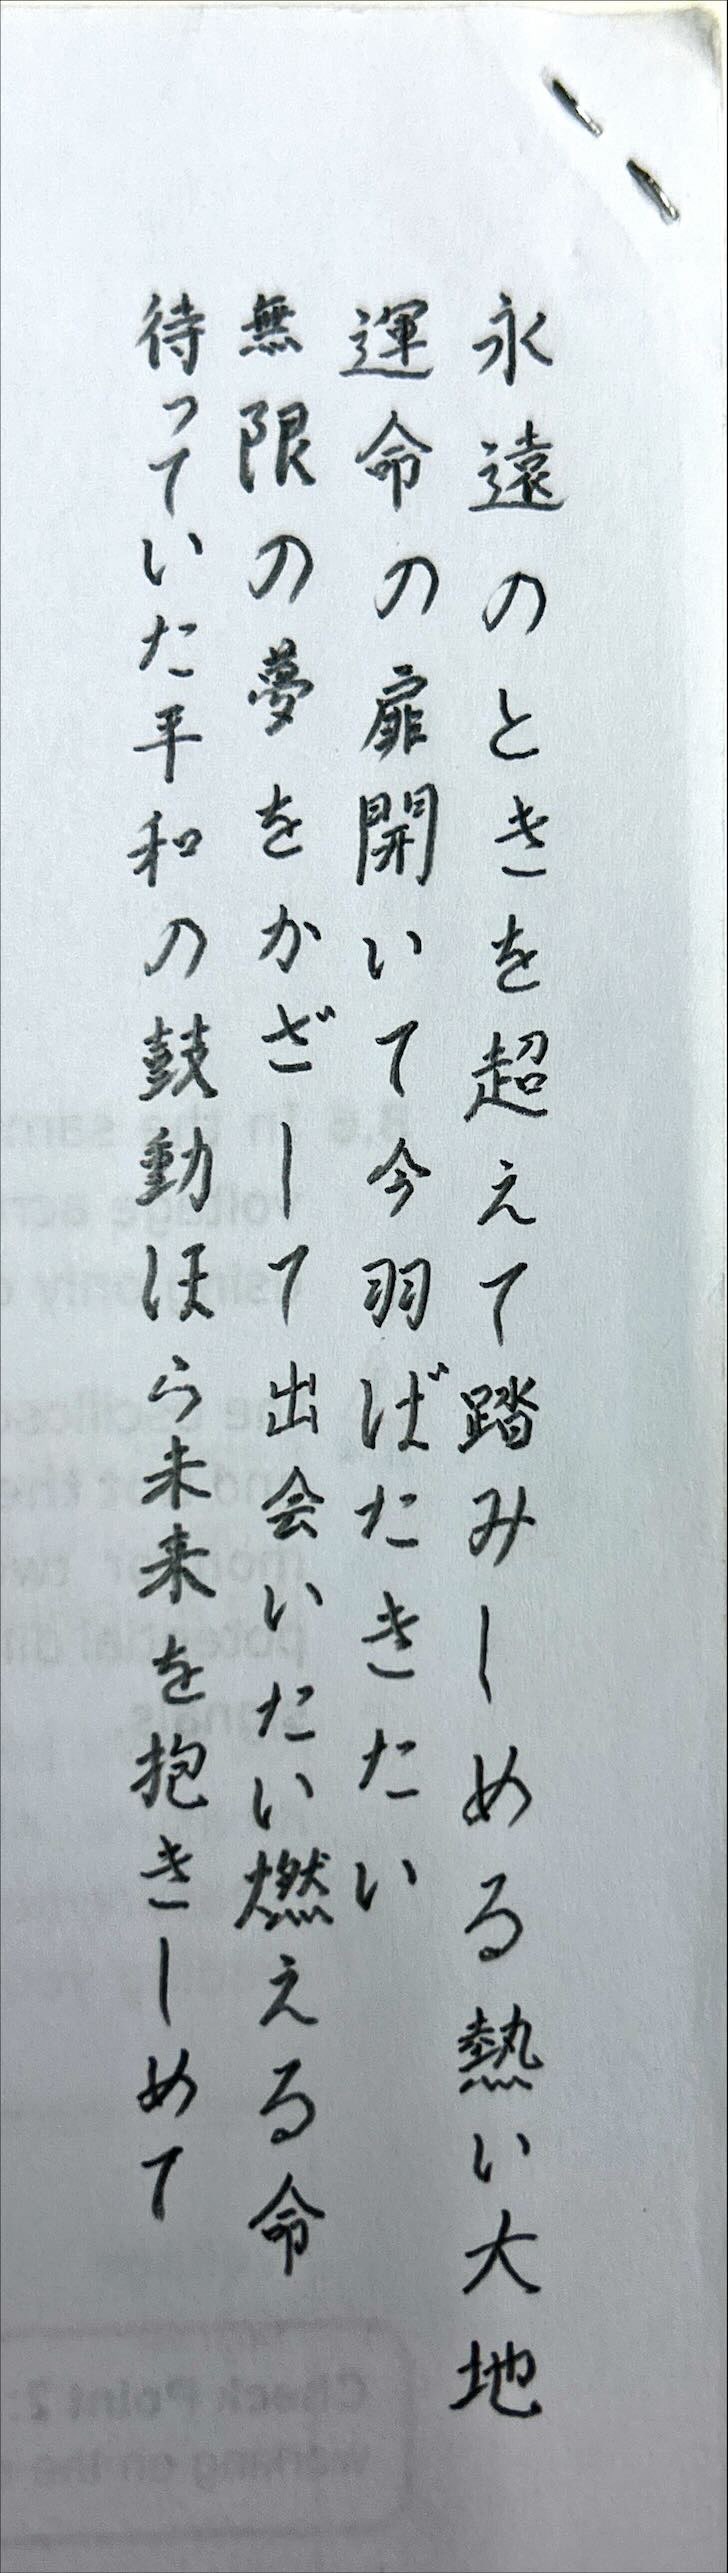 永遠のときを超えて踏みしめる熱い大地
運命の扉開いて今羽ばたきたい
無限の夢をかざして出会いたい燃える命
待っていた平和の鼓動ほら未来を抱きしめて